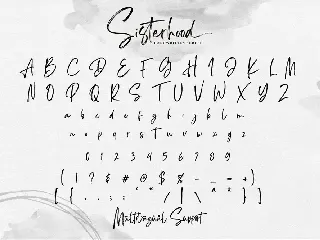 Sisterhood
A B C D E F G H I J K L M
N O P Q R S T U V W X Y Z
a b c d e f g h i j k l m
n o p q r s t u v w x y z
0 1 2 3 4 5 6 7 8 9
( ! ? & # @ $ % - _ = + )
Multilingual Support